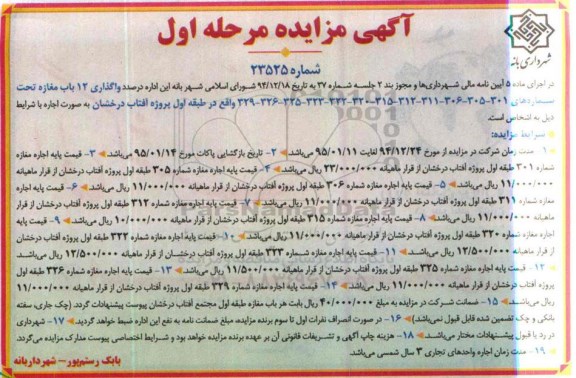 آگهی مزایده مرحله اول
شهرداری بانه
شماره ۲۳۵۲۵
در اجرای ماده ۵ آیین نامه مالی شهرداری‌ها و مجوز بند ۲ جلسه شماره ۳۷ به تاریخ ۹۴/۱۲/۱۸ شورای اسلامی شهر بانه این اداره درصدد واگذاری ۱۲ باب مغازه تحت
شماره‌های ۳۰۱-۳۰۵-۳۰۶-۳۱۱-۳۱۲-۳۱۵-۳۲۰-۳۲۲-۳۲۳-۳۲۵-۳۲۶-۳۲۹ واقع در طبقه اول پروژه آفتاب درخشان به صورت اجاره با شرایط
ذیل به اشخاص است.
شرایط مزایده:
۱- مدت زمان شرکت در مزایده از مورخ ۹۴/۱۲/۲۴ لغایت ۹۵/۰۱/۱۱ می‌باشد ۲- تاریخ بازگشایی پاکات مورخ ۹۵/۰۱/۱۴ می‌باشد ۳- قیمت پایه اجاره مغازه
شماره ۳۰۱ طبقه اول پروژه آفتاب درخشان از قرار ماهیانه ۲۳/۰۰۰/۰۰۰ ریال می‌باشد ۴- قیمت پایه اجاره مغازه شماره ۳۰۵ طبقه اول پروژه آفتاب درخشان از قرار ماهیانه
۱۱/۰۰۰/۰۰۰ ریال می‌باشد ۵- قیمت پایه اجاره مغازه شماره ۳۰۶ طبقه اول پروژه آفتاب درخشان از قرار ماهیانه ۱۱/۰۰۰/۰۰۰ ریال می‌باشد ۶- قیمت پایه اجاره
مغازه شماره ۳۱۱ طبقه اول پروژه آفتاب درخشان از قرار ماهیانه ۱۱/۰۰۰/۰۰۰ ریال می‌باشد ۷- قیمت پایه اجاره مغازه شماره ۳۱۲ طبقه اول پروژه آفتاب درخشان از قرار
ماهیانه ۱۱/۰۰۰/۰۰۰ ریال می‌باشد ۸- قیمت پایه اجاره مغازه شماره ۳۱۵ طبقه اول پروژه آفتاب درخشان از قرار ماهیانه ۱۰/۰۰۰/۰۰۰ ریال می‌باشد ۹- قیمت پایه
اجاره مغازه شماره ۳۲۰ طبقه اول پروژه آفتاب درخشان از قرار ماهیانه ۱۱/۰۰۰/۰۰۰ ریال می‌باشد ۱۰- قیمت پایه اجاره مغازه شماره ۳۲۲ طبقه اول پروژه آفتاب درخشان
از قرار ماهیانه ۱۲/۵۰۰/۰۰۰ ریال می‌باشد ۱۱- قیمت پایه اجاره مغازه شماره ۳۲۳ طبقه اول پروژه آفتاب درخشان از قرار ماهیانه ۱۲/۵۰۰/۰۰۰ ریال می‌باشد
۱۲- قیمت پایه اجاره مغازه شماره ۳۲۵ طبقه اول پروژه آفتاب درخشان از قرار ماهیانه ۱۱/۵۰۰/۰۰۰ ریال می‌باشد ۱۳- قیمت پایه اجاره مغازه شماره ۳۲۶ طبقه اول
پروژه آفتاب درخشان از قرار ماهیانه ۱۱/۵۰۰/۰۰۰ ریال می‌باشد ۱۴- قیمت پایه اجاره مغازه شماره ۳۲۹ طبقه اول پروژه آفتاب درخشان از قرار ماهیانه ۱۱/۰۰۰/۰۰۰
ریال می‌باشد ۱۵- ضمانت شرکت در مزایده به مبلغ ۴۰/۰۰۰/۰۰۰ ریال بابت هر باب مغازه طبقه اول مجتمع آفتاب درخشان پیوست پیشنهادات گردد. (چک جاری، سفته
بانکی و چک تضمین شده قابل قبول نمی‌باشد) ۱۶- در صورت انصراف نفرات اول تا سوم برنده مزایده، مبلغ ضمانت نامه به نفع این اداره ضبط خواهد گردید. ۱۷- شهرداری
در رد یا قبول پیشنهادات مختار می‌باشد. ۱۸- هزینه چاپ آگهی و تشریفات قانونی آن بر عهده برنده مزایده خواهد بود و شرایط اختصاصی پیوست مدارک مزایده می‌گردد.
۱۹- مدت زمان اجاره واحدهای تجاری ۳ سال شمسی می‌باشد.
بابک رستم‌پور – شهردار بانه